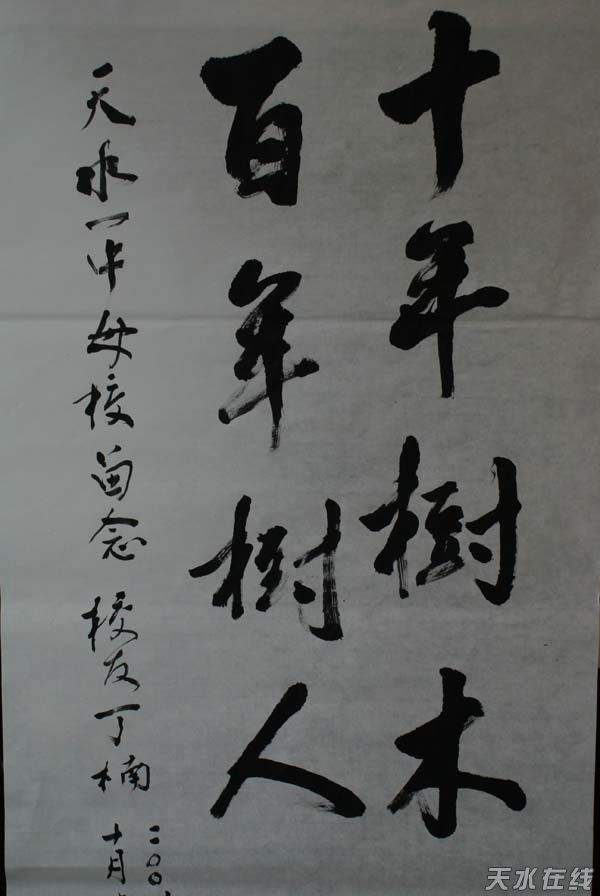 十年樹木
百年樹人
天水一中母校留念 校友丁楠
二〇〇
十月
天水在线